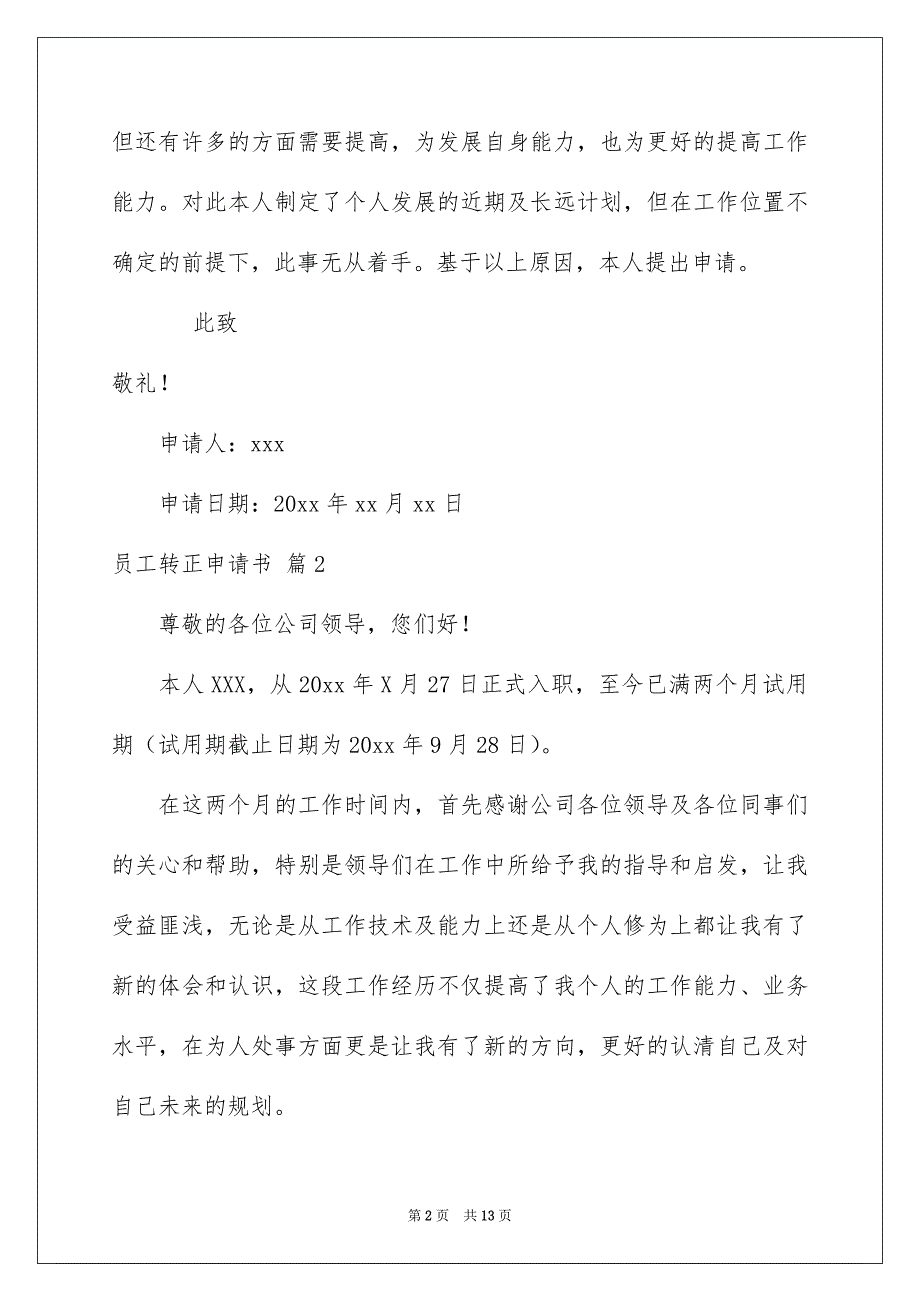 但还有许多的方面需要提高，为发展自身能力，也为更好的提高工作
能力。对此本人制定了个人发展的近期及长远计划，但在工作位置不
确定的前提下，此事无从着手。基于以上原因，本人提出申请。
此致
敬礼！
申请人：xxx
申请日期：20xx 年 xx 月 xx 日
员工转正申请书 篇 2
尊敬的各位公司领导，您们好！
本人 XXX，从 20xx 年 X 月 27 日正式入职，至今已满两个月试用
期（试用期截止日期为 20xx 年 9 月 28 日）。
在这两个月的工作时间内，首先感谢公司各位领导及各位同事们
的关心和帮助，特别是领导们在工作中所给予我的指导和启发，让我
受益匪浅，无论是从工作技术及能力上还是从个人修为上都让我有了
新的体会和认识，这段工作经历不仅提高了我个人的工作能力、业务
水平，在为人处事方面更是让我有了新的方向，更好的认清自己及对
自己未来的规划。
第 2 页 共 13 页